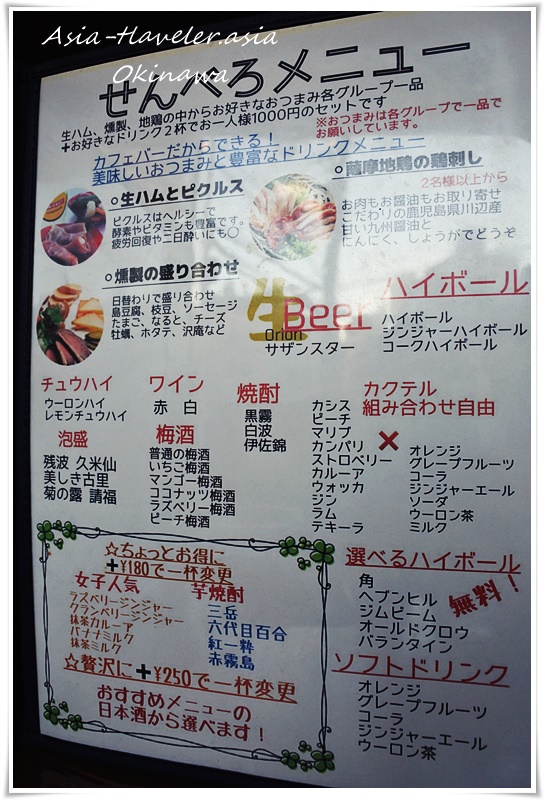 Asia-Haveler.asia
Okinawa
せんべろメニュー
生ハム、燻製、地鶏の中からお好きなおつまみ各グループ一品
+お好きなドリンク2杯でお一人様1000円のセットです
※おつまみは各グループで一品で
お願いしています。
カフェバーだからできる!
美味しいおつまみと豊富なドリンクメニュー
○生ハムとピクルス
ピクルスはヘルシーで
酵素やビタミンも豊富です。
疲労回復や二日酔いにも〇
○薩摩地鶏の鶏刺し
2名様以上から
お肉もお醤油もお取り寄せ
こだわりの鹿児島県川辺産
甘い九州醤油と
にんにく、しょうがでどうぞ
○燻製の盛り合わせ
日替わりで盛り合わせ
島豆腐、枝豆、ソーセージ
たまご、なると、チーズ
牡蠣、ホタテ、沢庵など
生Beer
Orion
サザンスター
ハイボール
ハイボール
ジンジャーハイボール
コークハイボール
チュウハイ
ウーロンハイ
レモンチュウハイ
ワイン
赤 白
焼酎
黒霧
白波
伊佐錦
カクテル
組み合わせ自由
カシス
ピーチ
マリブ
カンパリ
ストロベリー
カルーア
ウォッカ
ジン
ラム
テキーラ
×
オレンジ
グレープフルーツ
コーラ
ジンジャーエール
ソーダ
ウーロン茶
ミルク
泡盛
残波 久米仙
美しき古里
菊の露 請福
梅酒
普通の梅酒
いちご梅酒
マンゴー梅酒
ココナッツ梅酒
ラズベリー梅酒
ピーチ梅酒
☆ちょっとお得に
+¥180で一杯変更
女子人気
ラズベリージンジャー
クランベリージンジャー
抹茶カルーア
バナナミルク
抹茶ミルク
芋焼酎
三岳
六代目百合
紅一粋
赤霧島
☆贅沢に+¥250で一杯変更
おすすめメニューの
日本酒から選べます!
選べるハイボール
角
ヘブンヒル
ジムビーム
オールドクロウ
バランタイン
無料!
ソフトドリンク
オレンジ
グレープフルーツ
コーラ
ジンジャーエール
ウーロン茶